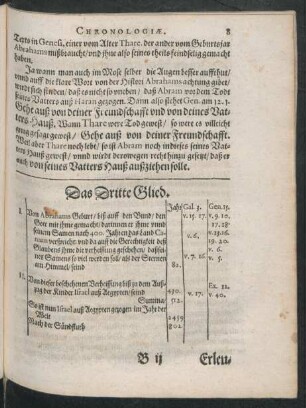 CHRONOLOGIÆ. 8
Texts in Genesi, einer vom Alter Thare, der ander vom Geburtsjar
Abrahams mißbraucht/ und ihne also seines theils feindselig gemacht
haben.
Ja wann man auch im Mose selber die Augen besser auffthut/
unnd auff die klare Wort von der Histori Abrahams achtung gibet/
wurd sich finden/ daß es nicht so wenn daß Abram von dem Todt
seines Vatters auß Haran gezogen. Dann also stehet Gen. am 12. 1.
Gehe auß von deiner Freundschafft und von deines Vat-
ters Hauß. Wann Thare were Todt gewest/ so were es villeicht
genug gesagt gewest/ Gehe auß von deiner Freundschafft.
Weil aber Thare noch lebte/ so ist Abram noch in dieses seines Vat-
ters Hauß gewest/ unnd wirdt derowegen recht hinzu gesetzt/ daß er
auch von seines Vatters Hauß außziehen solle.
Das Dritte Glied.
Jahr Gal. 3. Gen. 15.
I. Von Abrahams Geburt/ biß auff den Bund/ den v. 15. 17. v. 9. 10.
Gott mit ihme gemacht/ darinnen er ihme unnd 17. 18.
seinem Samen nach 400. Jahren das Land Ca- v. 6. v. 15. 16.
naan verspricht und da auff die Gerechtigkeit deß 19. 20.
Glaubens ihme die verheissung geschehen/ daß sei- v. 6.
nes Samens so viel werden soll als der Sternen v. 7. 16. v. 5.
am Himmel/ seind 82.
II. Von dieser beschehenen Verheissung biß zu dem Auß- Ex. 12.
zug der Kinder Israel auß Aegypten/ seind 430. v. 17. v. 40.
Summa 512.
So ist nun Israel auß Aegypten gezogen im Jahr der
Welt 2459
Nach der Sündfluth 802.
B ij Erleu-